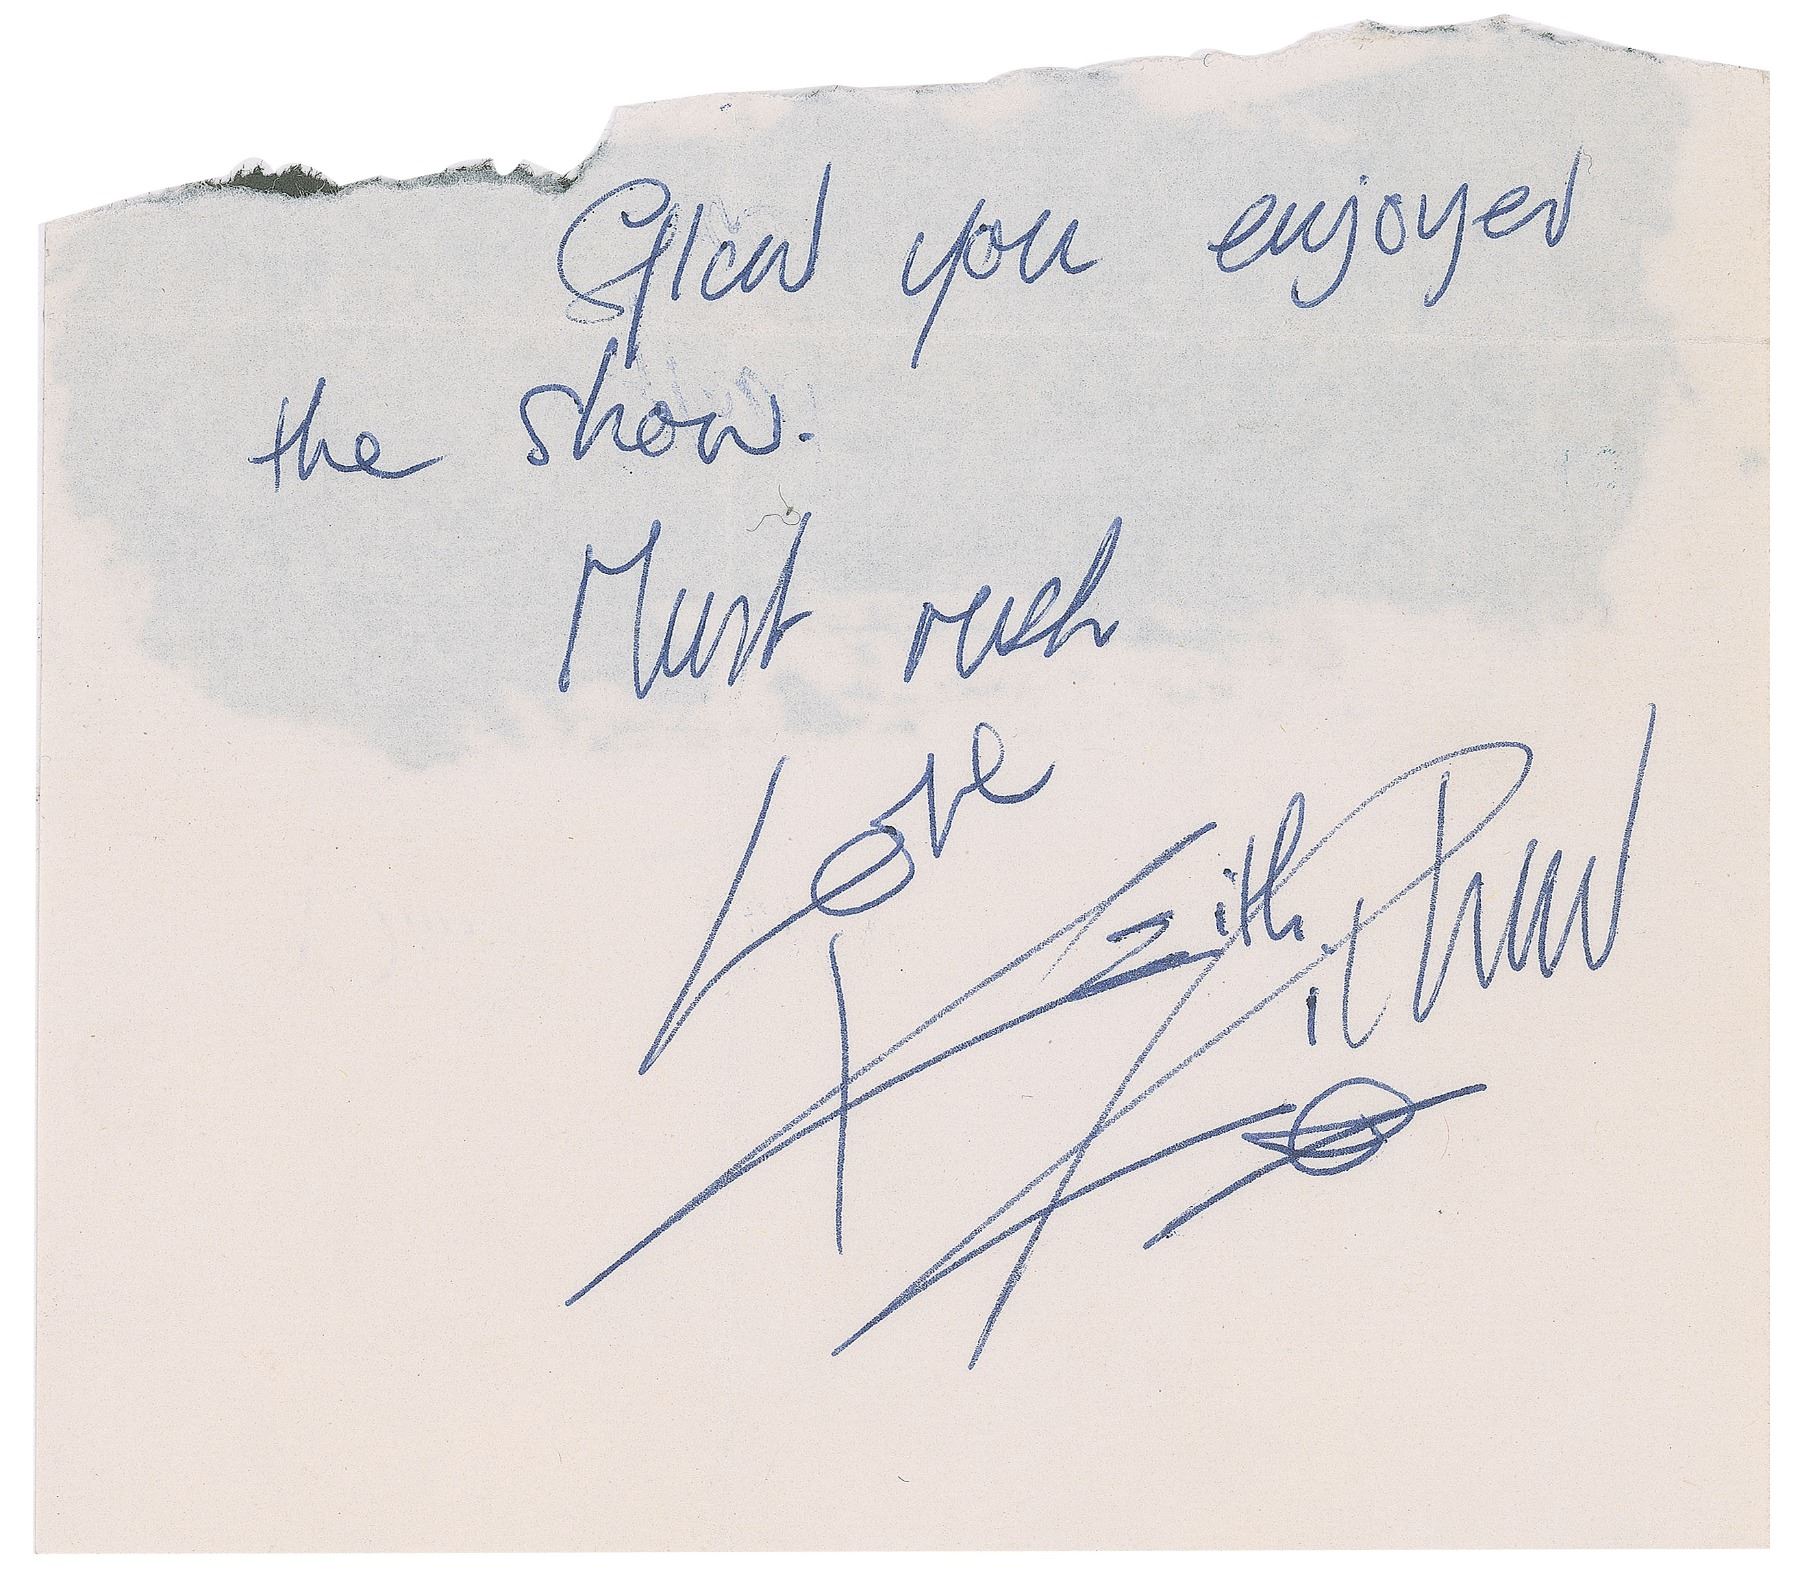 Glad you enjoyed
the show.
Must rush
Love
Keith Richard